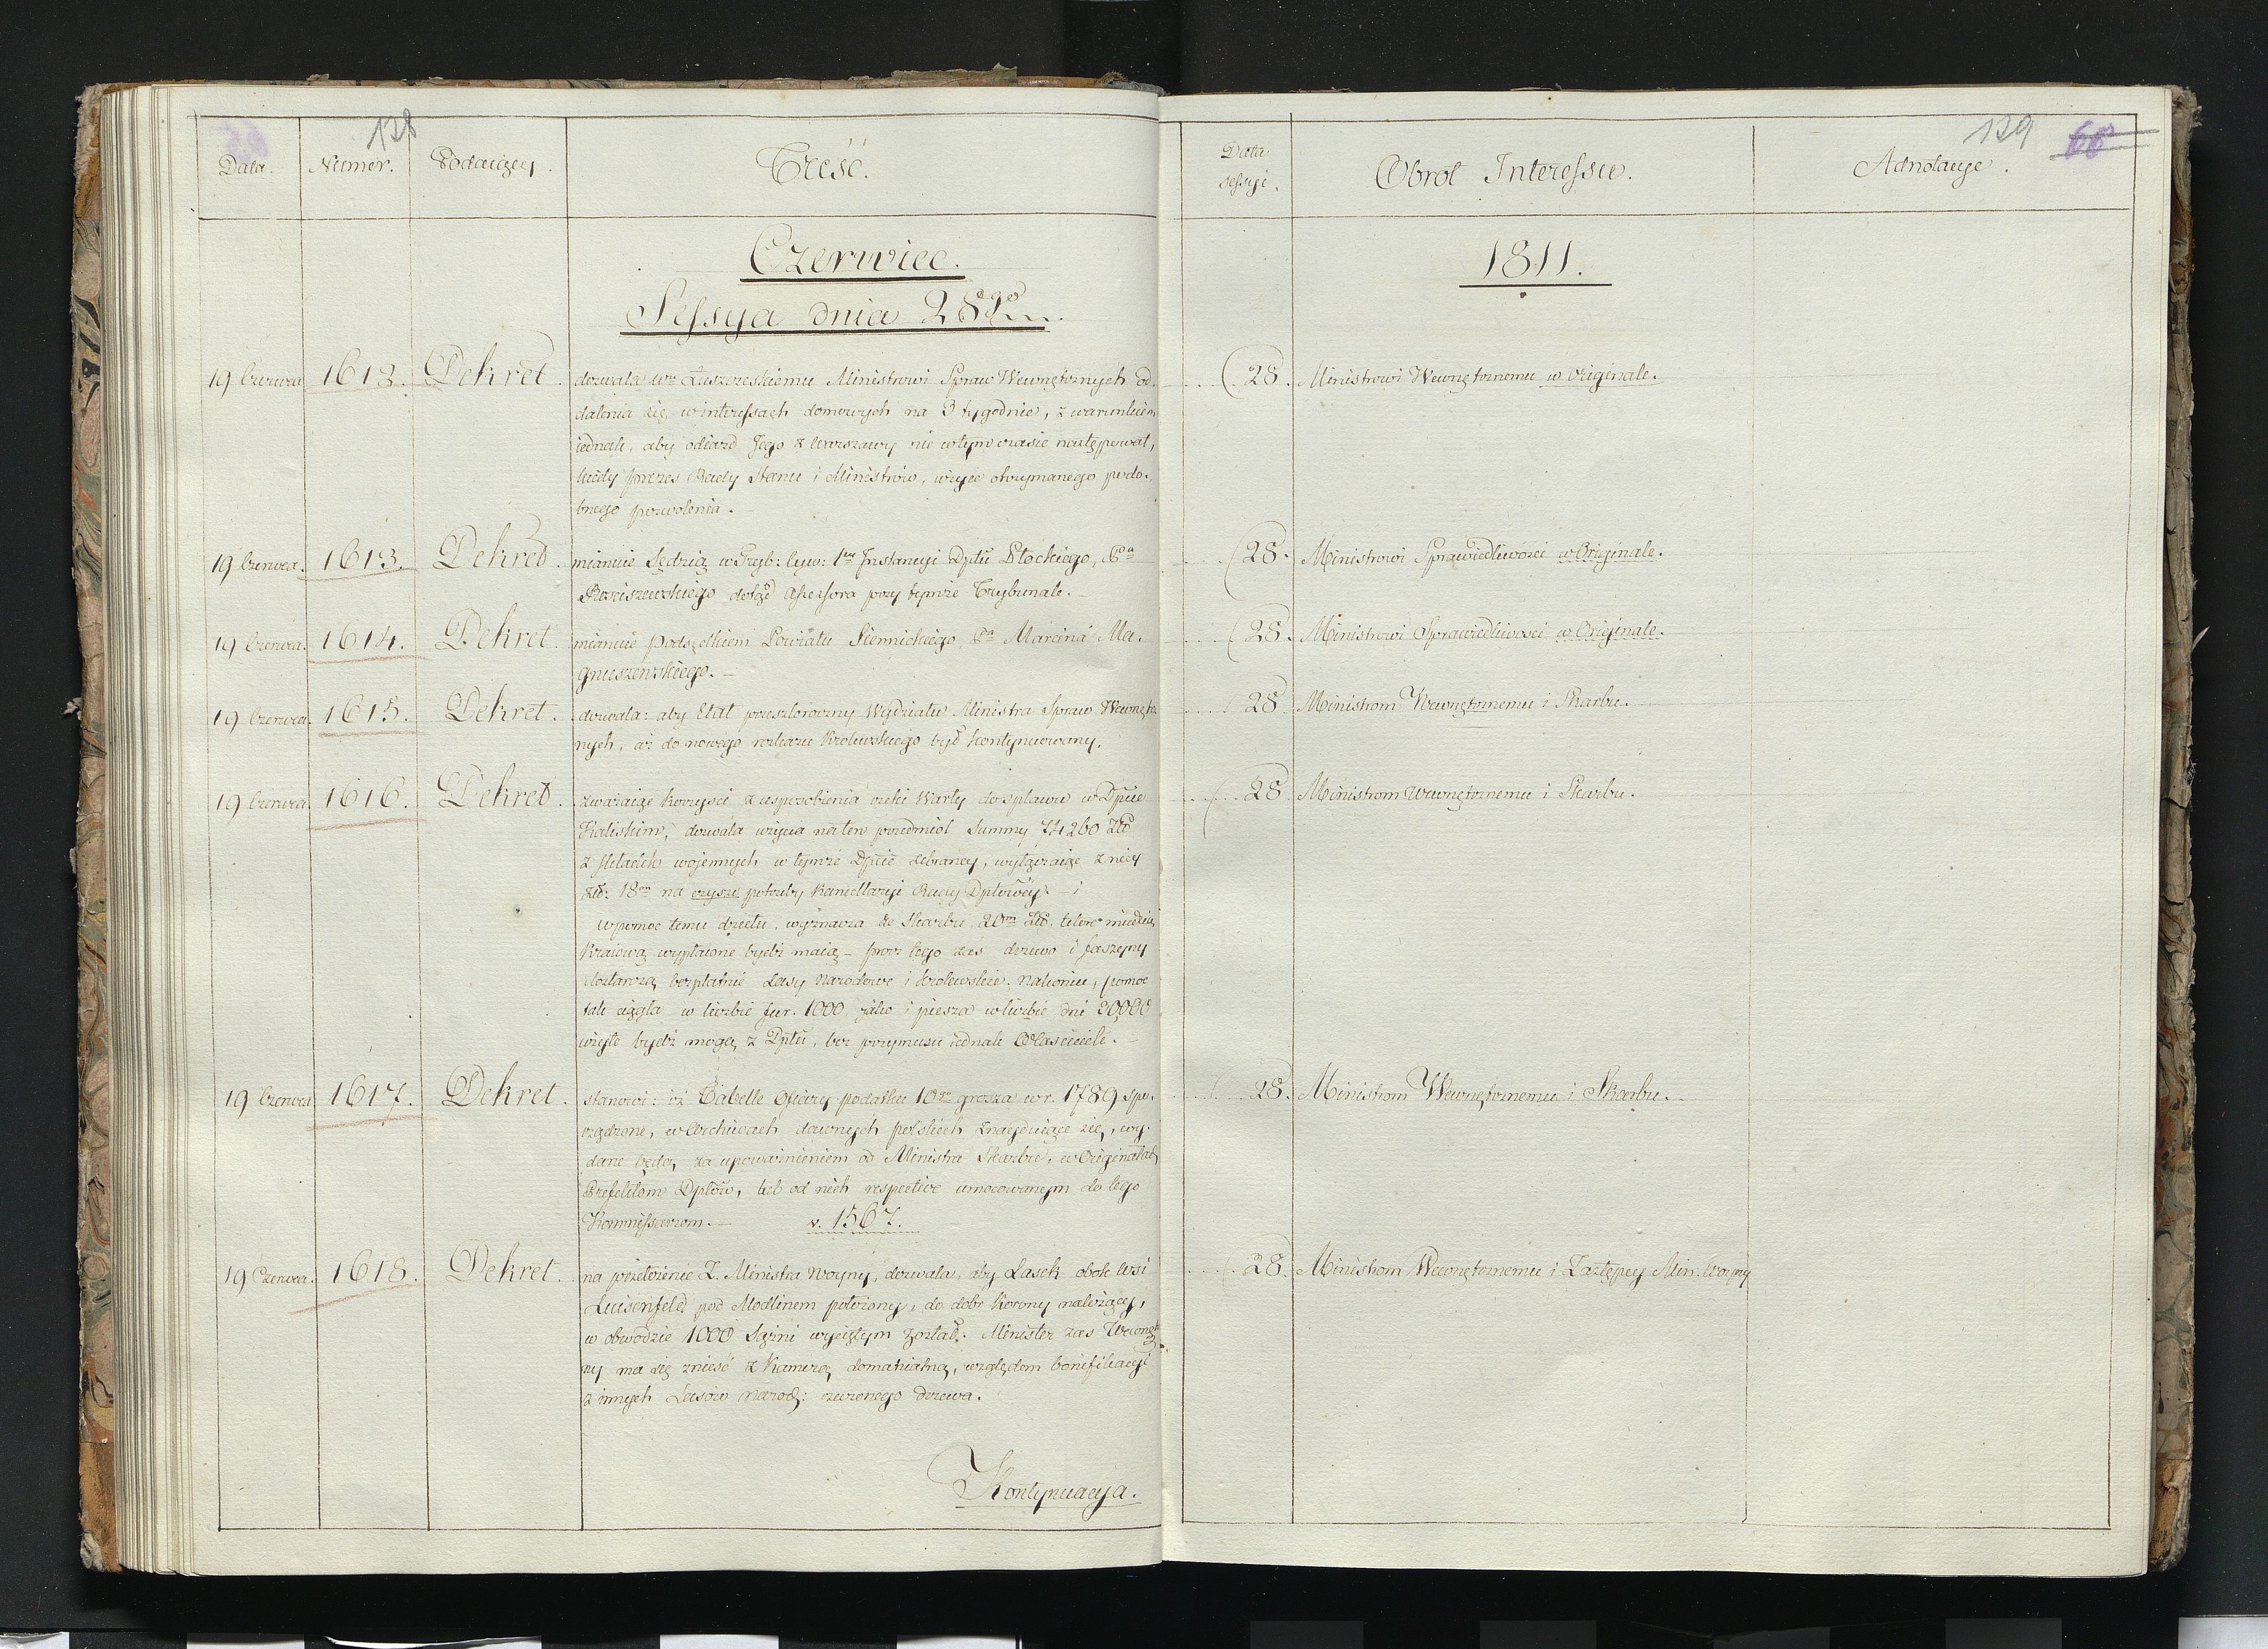 128
Data. Numer. Podaiący. Treść.
Czerwiec.
Sessya dnia 28go
19 Czerwca 1612. Dekret dozwala Łuszczeskiemu Ministrowi Spraw Wewnętrznych od-
dalenia się w interessach domowych na 3 tygodnie, z warunkiem
iednak, aby odiazd Jego z Warszawy nie w tym czasie następował,
kiedy prezes Rady Stanu i Ministrów, użyie otrzymanego podo-
bnego pozwolenia.
19 Czerwca. 1613. Dekret mianuie Sędzią w Tryb: Cyw: 1ey Instancyi Dptu Płockiego, Pa
Rosciszewskiego dotąd Assessora przy tymże Trybunale.
19 Czerwca. 1614. Dekret. mianuie Podsędkiem Powiatu Siennickiego, Pa Marcina Ma-
gnuszewskiego.
19 Czerwca. 1615. Dekret. dozwala: aby Etat przeszłoroczny Wydziału Ministra Spraw Wewnętrz
nych, aż do nowego rozkazu Krolewskiego był kontynuowany.
19 Czerwca. 1616. Dekret. zważaiąc korzysci z usposobienia rzeki Warty do spławu w Dptcie
Kaliskim, dozwala użycia na ten przedmiot Summy 74260 Złł
z składek wojennych w tymże Dptcie zebraney, wyłączaiąc z niey
Złł: 18m na czysze potrzeby Kancellaryi Rady Dptowey. - i
w pomoc temu dziełu, wyznacza ze Skarbu 20m Złł, które miedzią
Kraiową wypłacone bydź maią - procz tego zas drzewo i faszyny
dostarczą bezpłatnie Lasy Narodowe i Krolewskie. Nakoniec, pomoc
tak ciągła w liczbie fur. 1000, jako i piesza w liczbie dni 30,000
użyte bydź mogą z Dptu, bez przymusu iednak Właścicieli.
19 Czerwca 1617. Dekret. stanowi: iż Tabelle Ofiary podatku 10go grosza w r. 1789 spo-
rządzone, w Archiwach dawnych polskich znayduiące się, wy-
dane będą, za upoważnieniem od Ministra Skarbu, w Originałach
Prefektom Dptow, lub od nich respective umocowanym do tego
Kommissarzom. - v. 1567.
19 Czerwca. 1618. Dekret. na przełożenie Z. Ministra Woyny, dozwala, aby Lasek obok wsi
Luisenfeld pod Modlinem położony, do dobr Korony należący,
w obwodzie 1000 Sążni wyciętym został. Minister zas Wewnętrz
ny ma się znieść z Kamerą domanialną, względem bonifikacyi
z innych Lasow Narod: rzeczonego drzewa.
Kontynuacya.
129 66
Data sessyi. Obrot Interessu. Adnotacye.
1811.
28. Ministrowi Wewnętrznemu w Originale.
28. Ministrowi Sprawiedliwości w Originale.
28. Ministrowi Sprawiedliwości w Originale.
28 Ministrom Wewnętrznemu i Skarbu.
28 Ministrom Wewnętrznemu i Skarbu.
28. Ministrom Wewnętrznemu i Skarbu.
28. Ministrom Wewnętrznemu i Zastępcy Min: Woyny